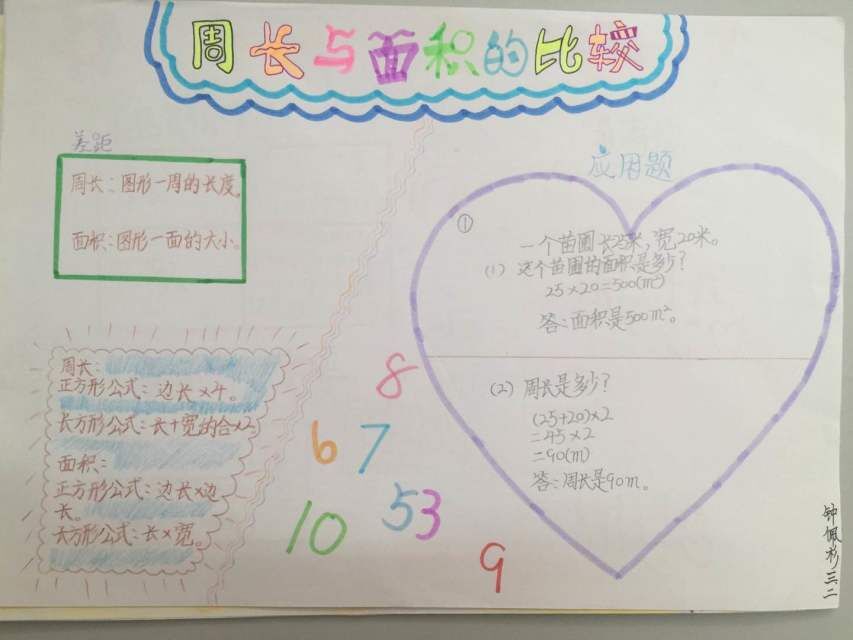 周长与面积的比较
差距
周长：图形一周的长度。
面积：图形一面的大小。
周长：
正方形公式：边长×4。
长方形公式：长+宽的合×2。
面积：
正方形公式：边长×边
长。
长方形公式：长×宽。
8
6 7
10 5 3
9
应用题
①
一个苗圃长25米，宽20米。
(1) 这个苗圃的面积是多少？
25×20=500(m²)
答：面积是500m²。
(2) 周长是多少？
(25+20)×2
=45×2
=90(m)
答：周长是90m。
钟佩杉 三.二